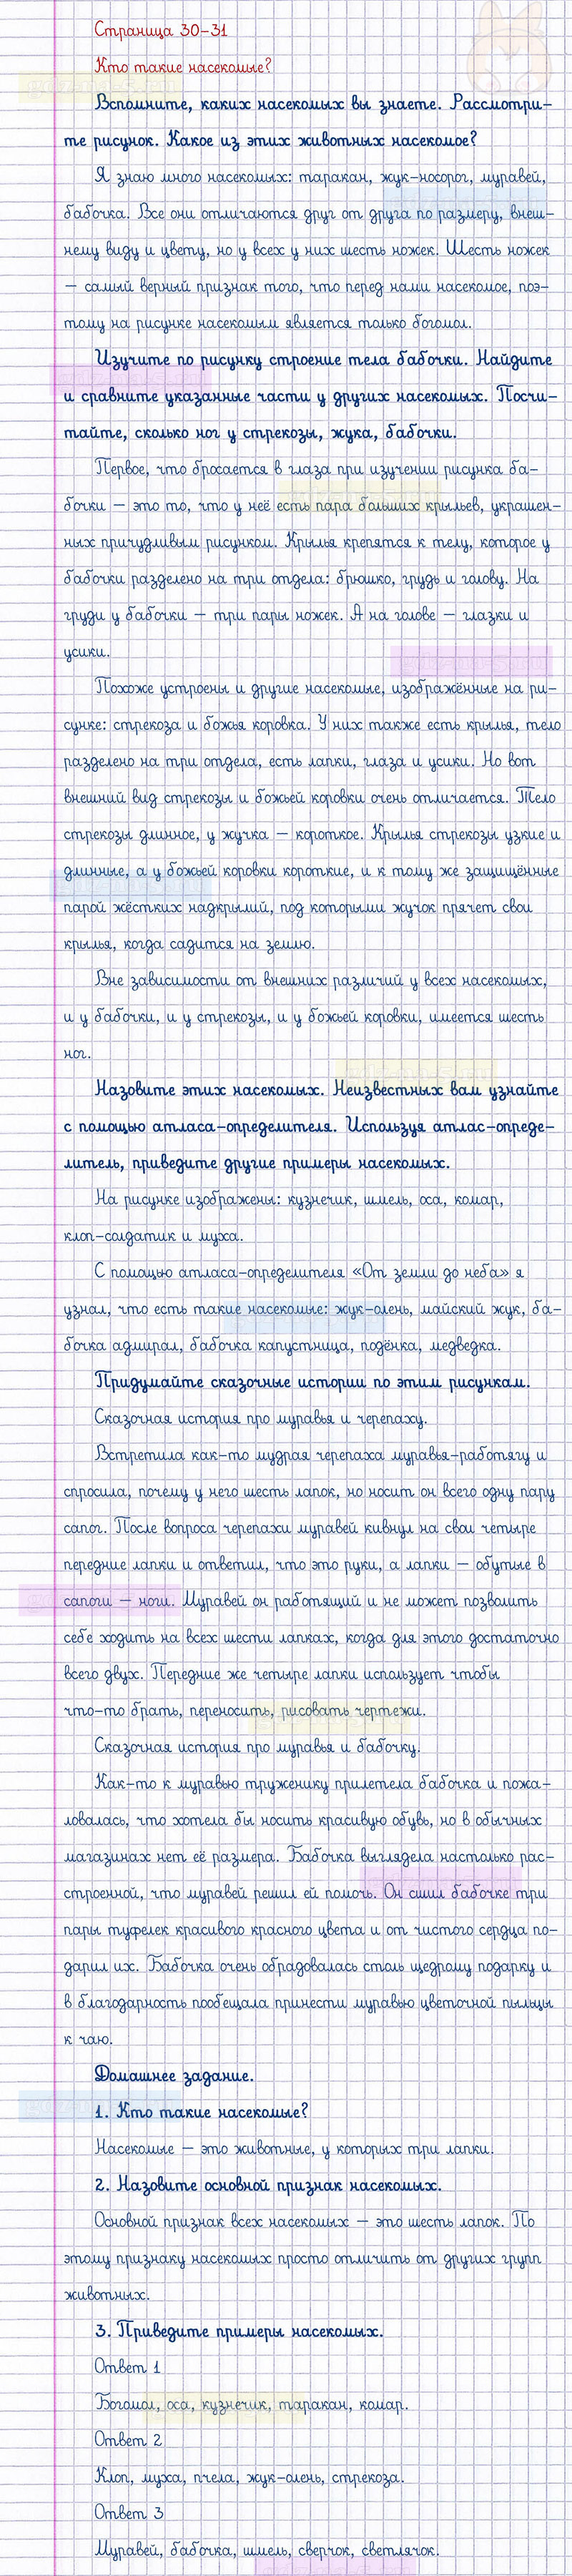 Страница 30-31
Кто такие насекомые?
Вспомните, каких насекомых вы знаете. Рассмотри-
те рисунок. Какое из этих животных насекомое?
Я знаю много насекомых: таракан, жук-носорог, муравей,
бабочка. Все они отличаются друг от друга по размеру, внеш-
нему виду и цвету, но у всех у них шесть ножек. Шесть ножек
— самый верный признак того, что перед нами насекомое, поэ-
тому на рисунке насекомым является только богомол.
Изучите по рисунку строение тела бабочки. Найдите
и сравните указанные части у других насекомых. Посчи-
тайте, сколько ног у стрекозы, жука, бабочки.
Первое, что бросается в глаза при изучении рисунка ба-
бочки — это то, что у неё есть пара больших крыльев, украшен-
ных причудливым рисунком. Крылья крепятся к телу, которое у
бабочки разделено на три отдела: брюшко, грудь и голову. На
груди у бабочки — три пары ножек. А на голове — глазки и
усики.
Похоже устроены и другие насекомые, изображённые на ри-
сунке: стрекоза и божья коровка. У них также есть крылья, тело
разделено на три отдела, есть лапки, глаза и усики. Но вот
внешний вид стрекозы и божьей коровки очень отличается. Тело
стрекозы длинное, у жучка — короткое. Крылья стрекозы узкие и
длинные, а у божьей коровки короткие, и к тому же защищённые
парой жёстких надкрылий, под которыми жучок прячет свои
крылья, когда садится на землю.
Вне зависимости от внешних различий у всех насекомых,
и у бабочки, и у стрекозы, и у божьей коровки, имеется шесть
ног.
Назовите этих насекомых. Неизвестных вам узнайте
с помощью атласа-определителя. Используя атлас-опреде-
литель, приведите другие примеры насекомых.
На рисунке изображены: кузнечик, шмель, оса, комар,
клоп-солдатик и муха.
С помощью атласа-определителя «От земли до неба» я
узнал, что есть такие насекомые: жук-олень, майский жук, ба-
бочка адмирал, бабочка капустница, подёнка, медведка.
Придумайте сказочные истории по этим рисункам.
Сказочная история про муравья и черепаху.
Встретила как-то мудрая черепаха муравья-работягу и
спросила, почему у него шесть лапок, но носит он всего одну пару
сапог. После вопроса черепахи муравей кивнул на свои четыре
передние лапки и ответил, что это руки, а лапки — обутые в
сапоги — ноги. Муравей он работящий и не может позволить
себе ходить на всех шести лапках, когда для этого достаточно
всего двух. Передние же четыре лапки использует чтобы
что-то брать, переносить, рисовать чертежи.
Сказочная история про муравья и бабочку.
Как-то к муравью труженику прилетела бабочка и пожа-
ловалась, что хотела бы носить красивую обувь, но в обычных
магазинах нет её размера. Бабочка выглядела настолько рас-
строенной, что муравей решил ей помочь. Он сшил бабочке три
пары туфелек красивого красного цвета и от чистого сердца по-
дарил их. Бабочка очень обрадовалась столь щедрому подарку и
в благодарность пообещала принести муравью цветочной пыльцы
к чаю.
Домашнее задание.
1. Кто такие насекомые?
Насекомые — это животные, у которых три лапки.
2. Назовите основной признак насекомых.
Основной признак всех насекомых — это шесть лапок. По
этому признаку насекомых просто отличить от других групп
животных.
3. Приведите примеры насекомых.
Ответ 1
Богомол, оса, кузнечик, таракан, комар.
Ответ 2
Клоп, муха, пчела, жук-олень, стрекоза.
Ответ 3
Муравей, бабочка, шмель, сверчок, светлячок.